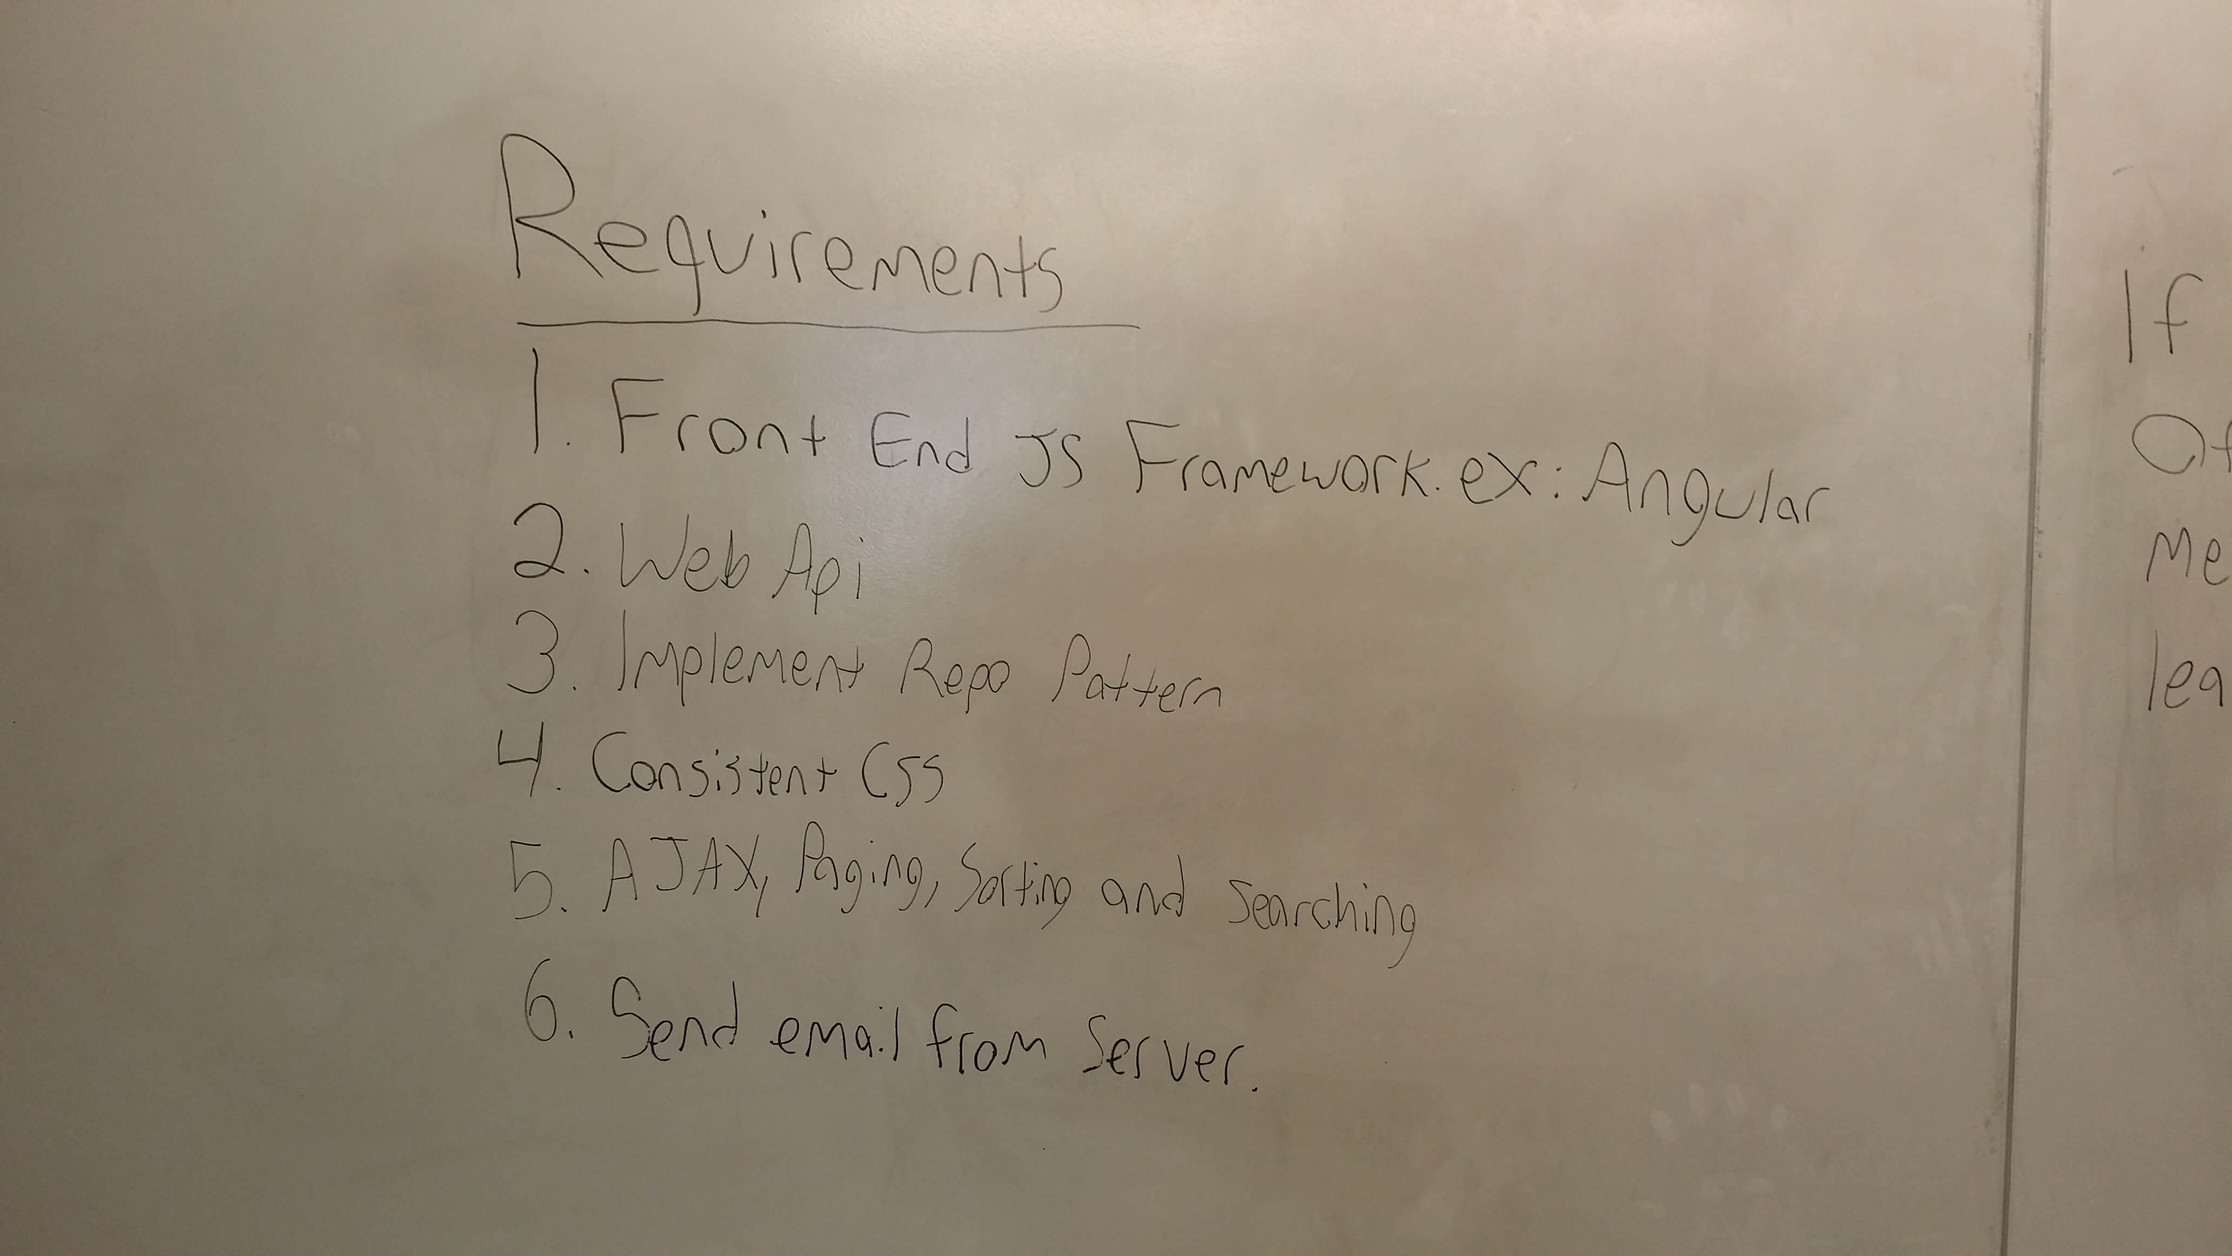 Requirements
1. Front End JS Framework. ex: Angular
2. Web Api
3. Implement Repo Pattern
4. Consistent CSS
5. AJAX, Paging, Sorting and Searching
6. Send email from Server.
If
Me
lea